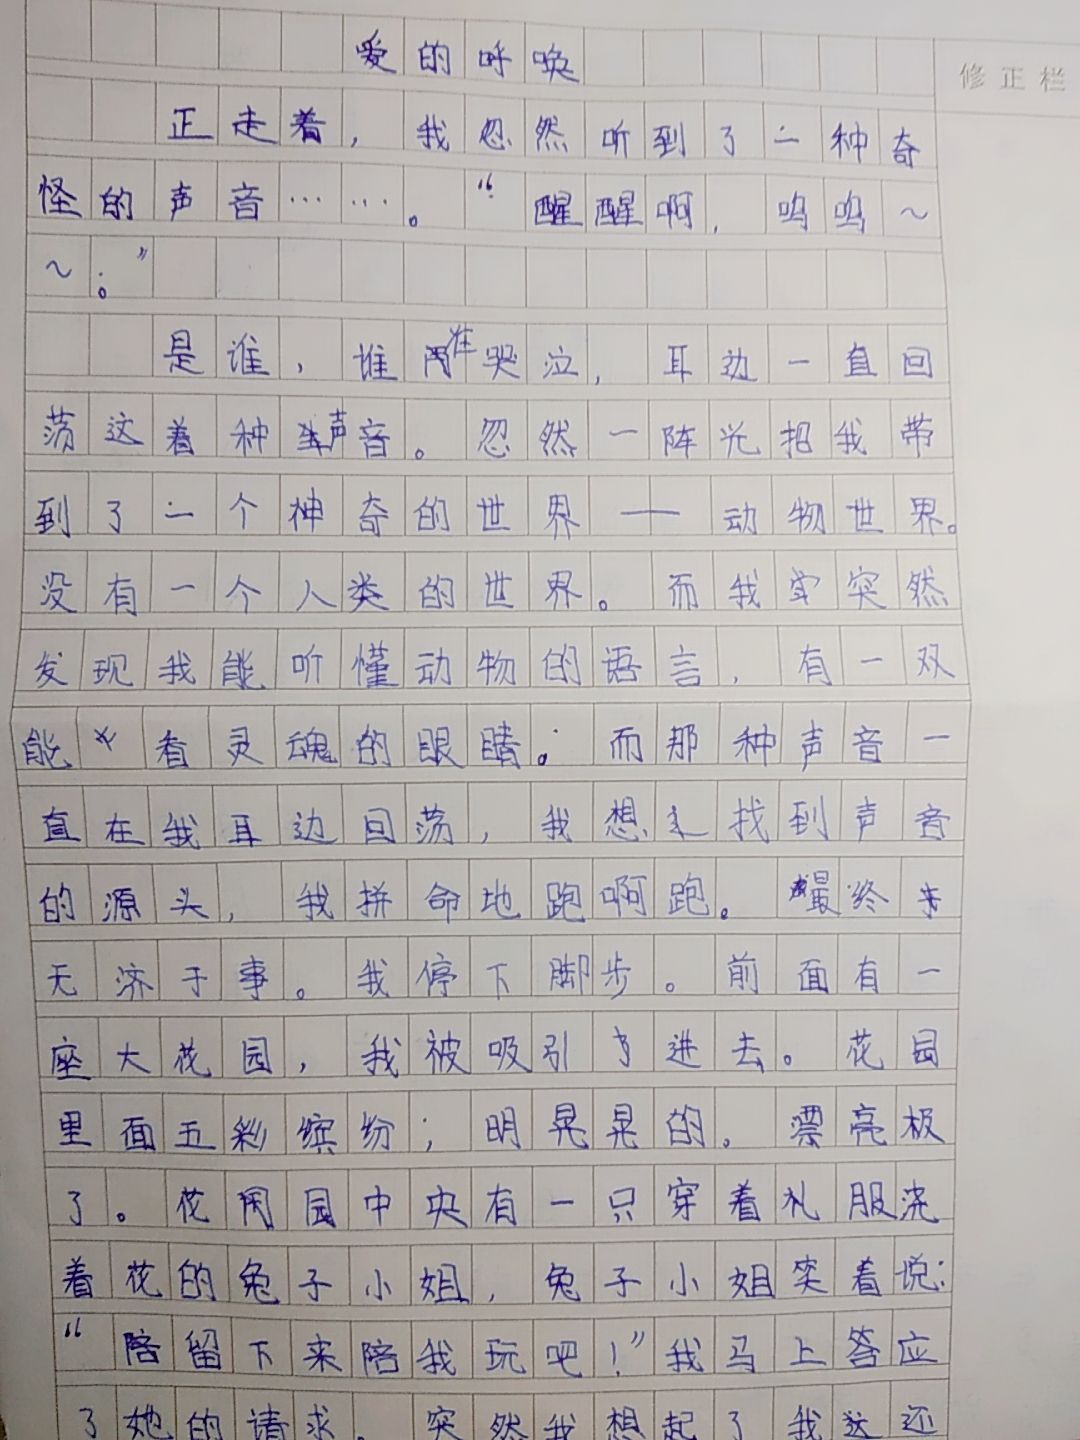 爱的呼唤
修正栏
正走着，我忽然听到了一种奇
怪的声音……。“醒醒啊，呜呜～
～。”
是谁，谁在哭泣，耳边一直回
荡这着种声音。忽然一阵光把我带
到了一个神奇的世界——动物世界。
没有一个人类的世界。而我突然
发现我能听懂动物的语言，有一双
能看灵魂的眼睛。而那种声音一
直在我耳边回荡，我想找到声音
的源头，我拼命地跑啊跑。最终
无济于事。我停下脚步。前面有一
座大花园，我被吸引了进去。花园
里面五彩缤纷；明晃晃的。漂亮极
了。花园中央有一只穿着礼服浇
着花的兔子小姐，兔子小姐笑着说：
“留下来陪我玩吧！”我马上答应
了她的请求。突然我想起了我还